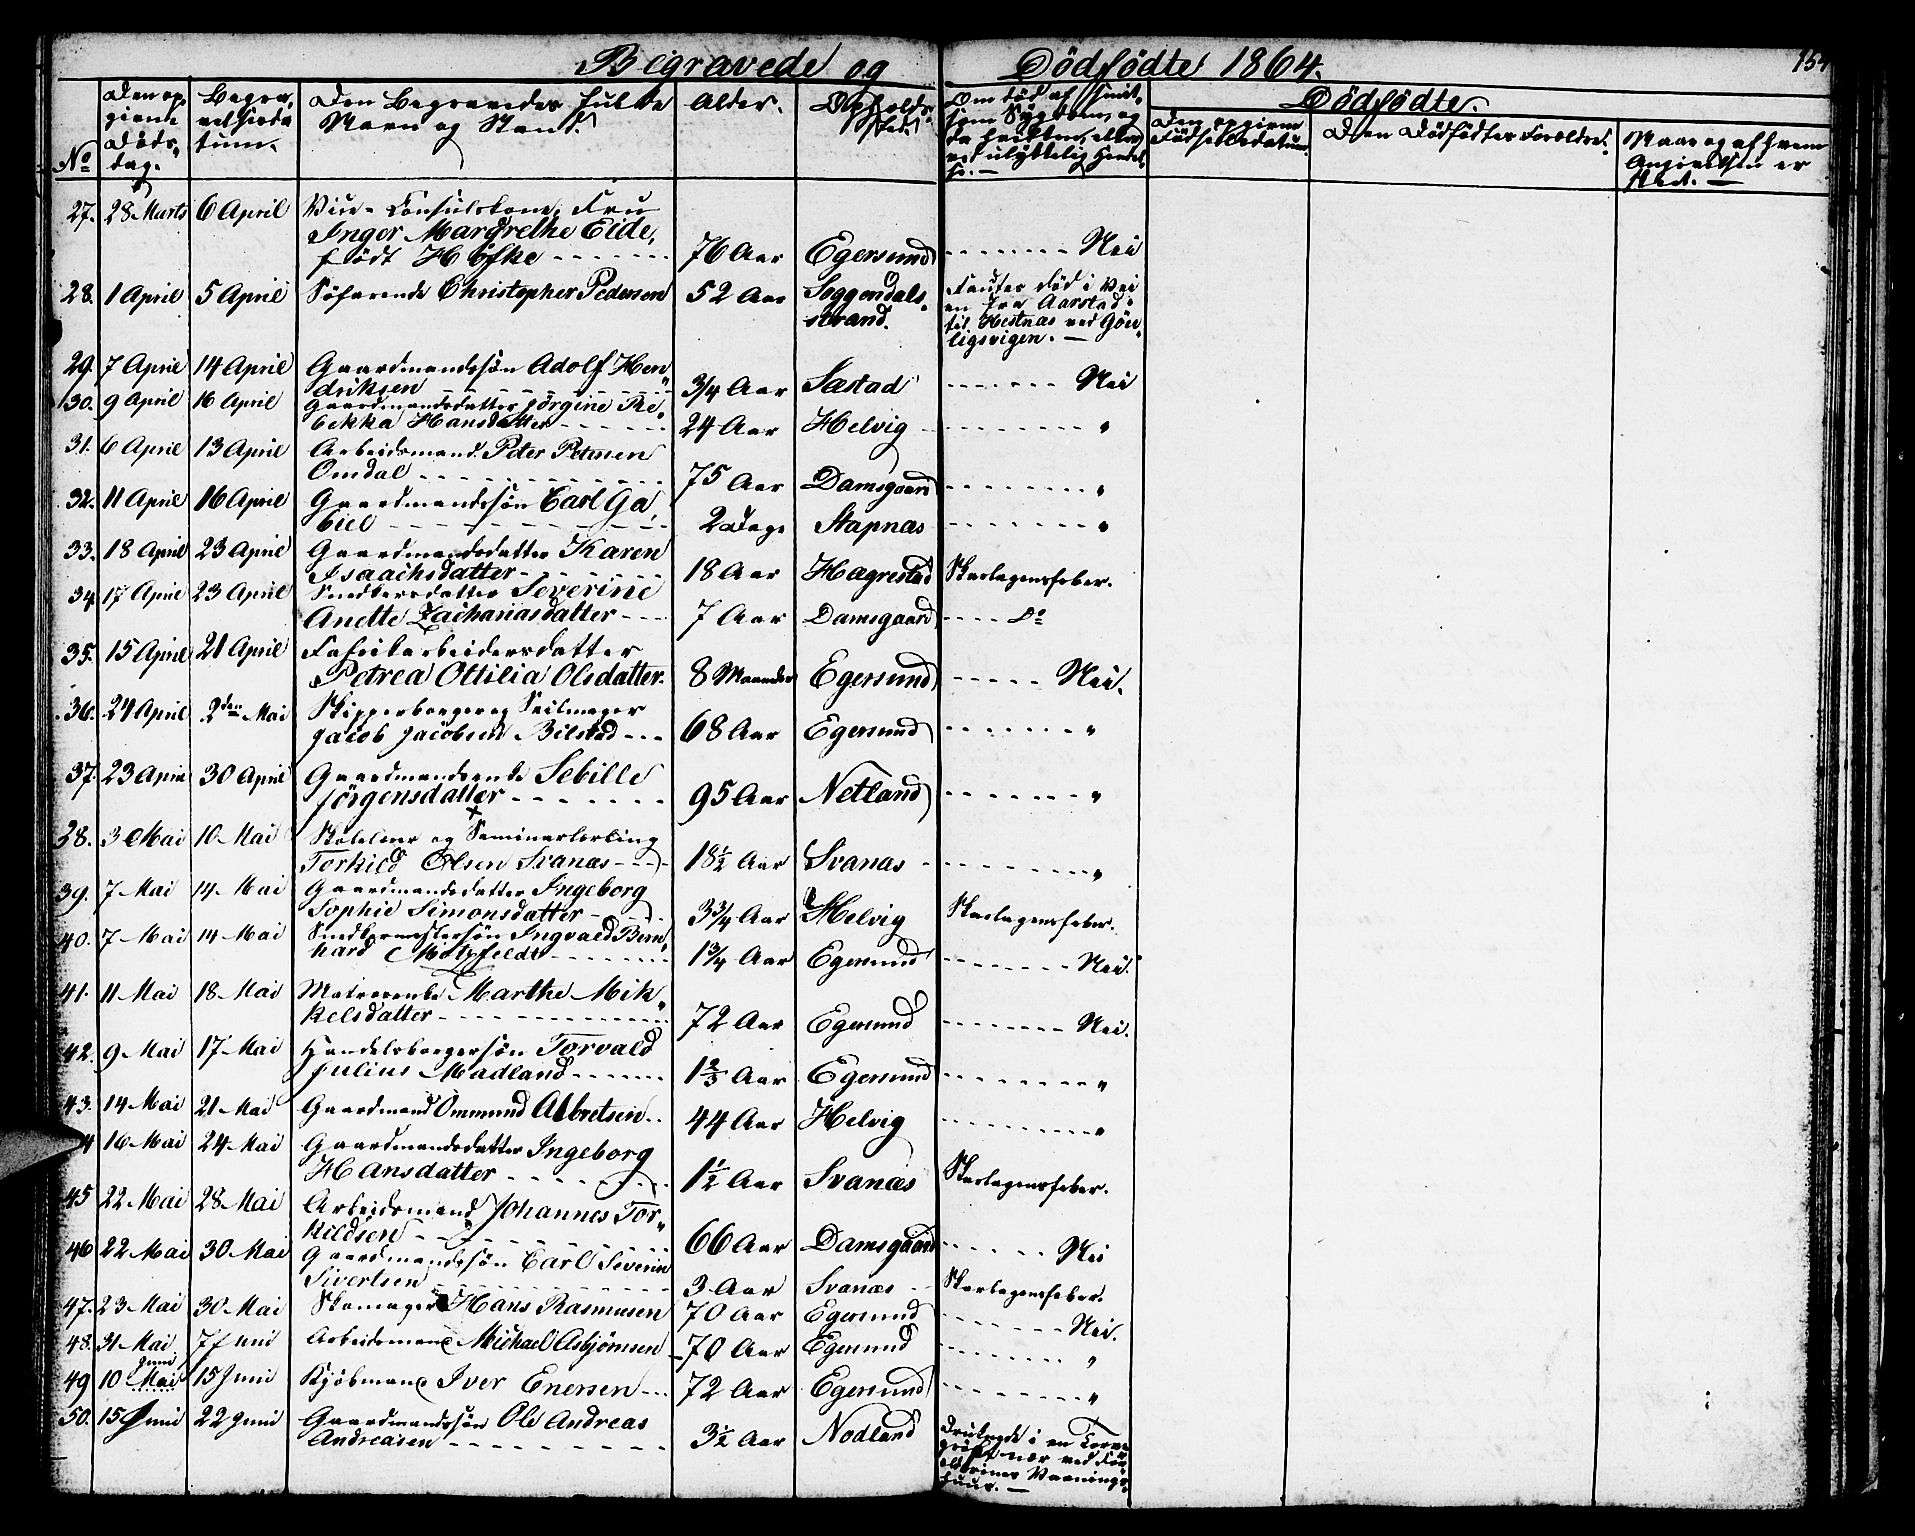 Begravede og Dödfödte 1864.
154
No
Den op-
givne
Döds-
dag.
Begra-
velsesda-
tum.
Den Begravedes fulde
Navn og Stand.
Alder.
Opholds-
sted.
Dödfödte.
Den opgivne
Födselsdatum.
Den Dödfödtes Forældre.
Naar og af hvem
Angivelsen er
skeet.
27. 28 Marts 6 April Vice-Consulskone, Fru
Inger Margrethe Eide,
født Höfke 76 Aar Egersund Nei
28. 1 April 5 April Söfarende Christopher Pedersen 52 Aar Soggendals-
strand. Fantes död i Vei
en fra Aarstad
til Hestnæs ved Gön
ligsvigen.
29. 7 April 14 April Gaardmandssön Adolf Hen
driksen 3/4 Aar Sæstad Nei
30. 9 April 16 April Gaardmandsdatter Jörgine Re-
bekka Hansdatter 24 Aar Helvig "
31. 6 April 13 April Arbeidsmand Peter Petersen
Omdal 75 Aar Damsgaard "
32. 11 April 16 April Gaardmandssön Carl Ga
briel 2 Dage Stapnæs "
33. 18 April 23 April Gaardmandsdatter Karen
Isaachsdatter 18 Aar Hægrestad Skarlagensfeber.
34. 17 April 23 April Snedkersdatter Severine
Anette Zachariasdatter 7 Aar Damsgaard Do
35. 15 April 21 April Fabrikarbeidersdatter
Petrea Ottilia Olsdatter. 8 Maaneder Egersund Nei.
36. 24 April 2den Mai Skipperborger og Seilmager
Jacob Jacobsen Bilstad 68 Aar Egersund "
37. 23 April 30 April Gaardmandsenke Sebille
Jörgensdatter 95 Aar Netland "
38. 3 Mai 10 Mai Skolelærer og Seminarlærling
Torkild Olsen Svanæs 18½ Aar Svanæs "
39. 7 Mai 14 Mai Gaardmandsdatter Ingeborg
Sophie Simonsdatter 3¾ Aar Helvig Skarlagensfeber.
40. 7 Mai 14 Mai Snedkermestersön Ingvald Bern-
hard Motzfeldt 1¾ Aar Egersund Nei.
41. 11 Mai 18 Mai Matrosenke Marthe Mik-
kelsdatter 72 Aar Egersund Nei.
42. 9 Mai 17 Mai Handelsborgersön Torvald
Julius Madland 1⅔ Aar Egersund "
43. 14 Mai 21 Mai Gaardmand Ommund Albretsen 44 Aar Helvig "
4 16 Mai 24 Mai Gaardmandsdatter Ingeborg
Hansdatter 1½ Aar Svanæs Skarlagensfeber.
45 22 Mai 28 Mai Arbeidsmand Johannes Tor-
kildsen 66 Aar Damsgaard Nei
46 22 Mai 30 Mai Gaardmandssön Carl Severin
Sivertsen 3 Aar Svanæs Skarlagensfeber.
47. 23 Mai 30 Mai Skomager Hans Rasmusen 70 Aar Egersund Nei.
48. 31 Mai 7 Juni Arbeidsmand Michael Asbjörnsen 70 Aar Egersund "
49 10 Mai Juni 15 Juni Kjöbmand Iver Enersen 72 Aar Egersund "
50. 15 Juni 22 Juni Gaardmandssön Ole Andreas
Andreasen 3½ Aar Nodland Druknede i en Torv-
gröft nær ved For
ældrenes Vaanings-
huus.